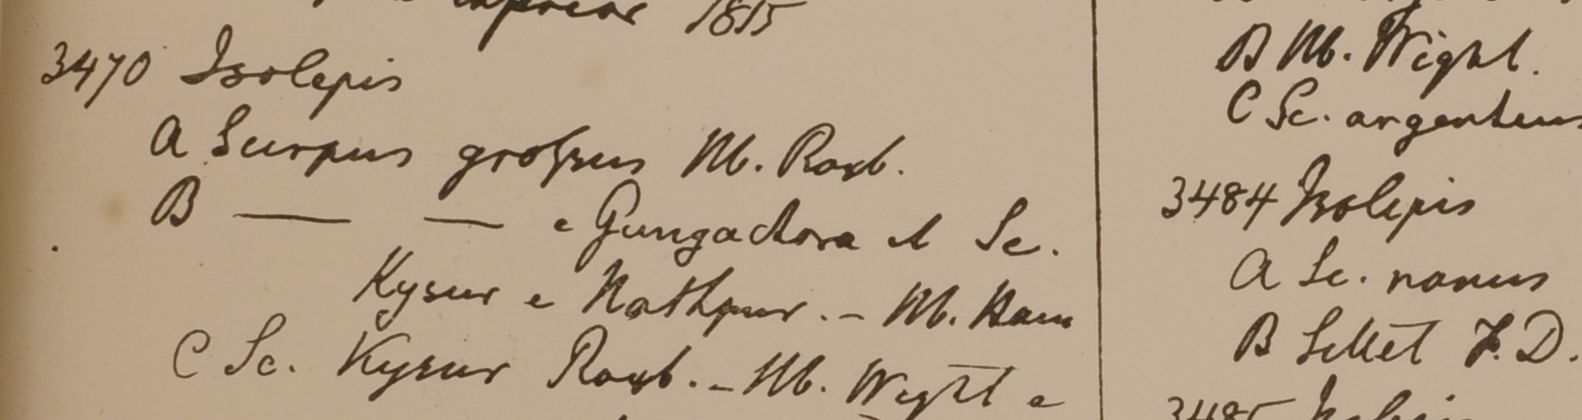 1815
3470 Isolepis
A Scirpus grossus Hb. Roxb.
B — — e Gungachora et Sc.
Kysur e Nathpur. - Hb. Ham
C Sc. Kysur Roxb. - Hb. Wight e
B Hb. Wight.
C Sc. argenteus
3484 Isolepis
A Sc. nanus
B Sillet F. D.
3485 Isolepis